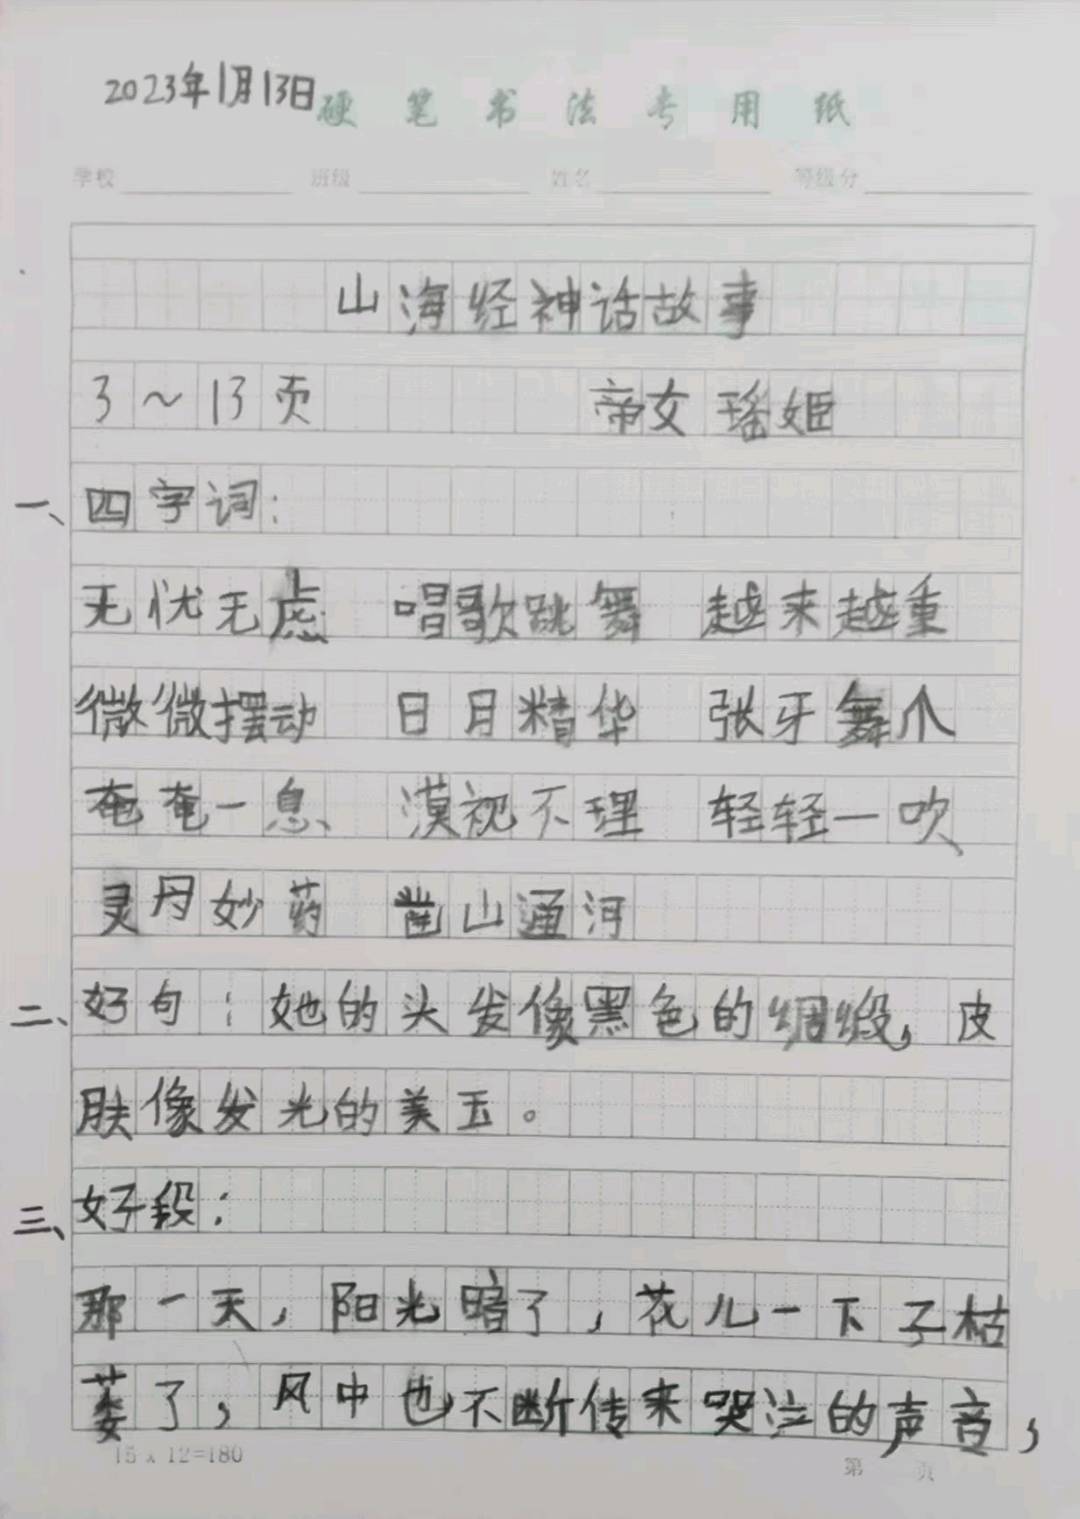 2023年1月13日 硬笔书法专用纸
学校 班级 姓名 等级分
山海经神话故事
3～13页 帝女瑶姬
一、四字词:
无忧无虑 唱歌跳舞 越来越重
微微摆动 日月精华 张牙舞爪
奄奄一息 漠视不理 轻轻一吹
灵丹妙药 凿山通河
二、好句:她的头发像黑色的绸缎,皮
肤像发光的美玉。
三、好段:
那一天,阳光暗了,花儿一下子枯
萎了,风中也不断传来哭泣的声音,
15x12=180
第 页